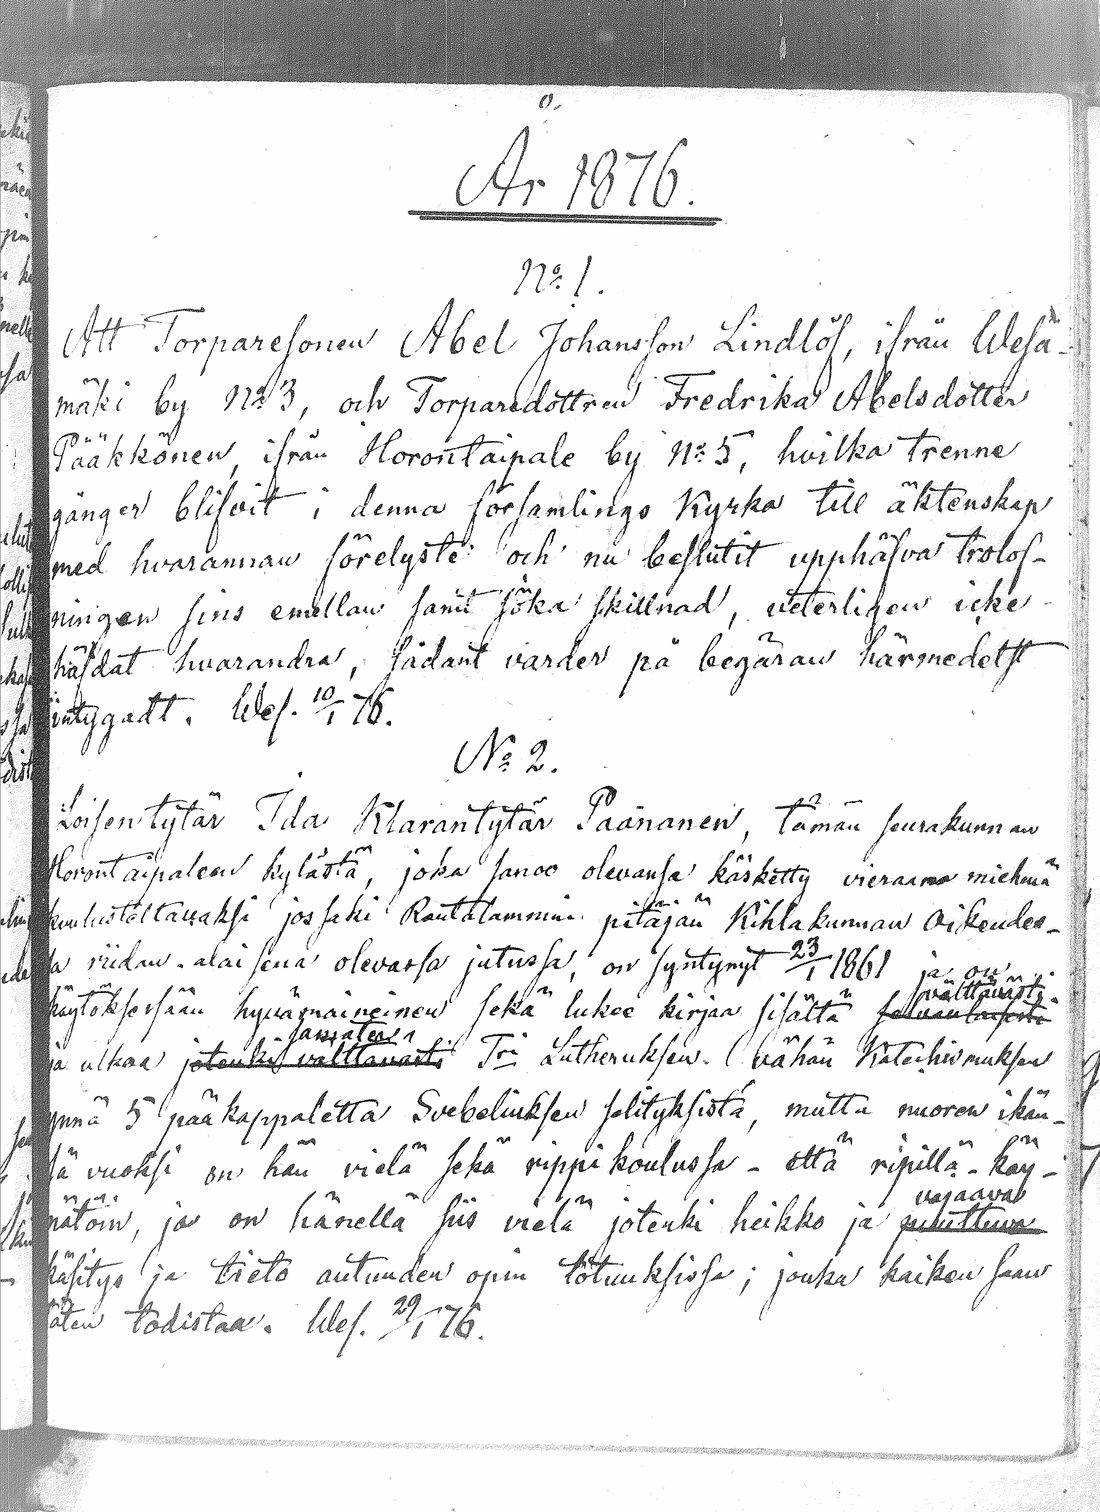 År 1876.
No 1.
Att Torparesonen Abel Johansson Lindlöf, ifrån Wesa-
mäki by No 3, och Torparedottren Fredrika Abelsdotter
Pääkkönen, ifrån Horontaipale by No 5, hvilka trenne
gånger blifvit i denna församlings Kyrka till äktenskap
med hvarannan förelyste och nu beslutit upphäfva trolof-
ningen sins emellan samt söka skillnad, veterligen icke
häfdat hvarandra, sådant varder på begäran härmedelst
intygadt. Wes. 10/1 76.
No 2.
Loisentytär Ida Klarantytär Paananen, tämän seurakunnan
Horontaipaleen kylästä, joka sanoo olevansa käsketty vieraana miehenä
kuulusteltavaksi jossaki Rautalammin pitäjän Kihlakunnan Oikeudes-
sa riidan-alaisena olevassa jutussa, on syntynyt 23/1 1861 ja on
välttävästi
käytöksessään hyvämaineinen sekä lukee kirjaa sisältä
ja ulkoa jotenki välttävästi Tri Lutheruksen vähän Katechismuksen
ynnä 5 pääkappaletta Svebeliuksen selityksistä, mutta nuoren ikän-
sä vuoksi on hän vielä sekä rippikoulussa- että ripillä-käy-
vajaava
mätöin, ja on hänellä siis vielä jotenki heikko ja puuttuva
käsitys ja tieto autuuden opin totuuksissa; jonka kaiken saan
täten todistaa. Wes. 29/1 76.